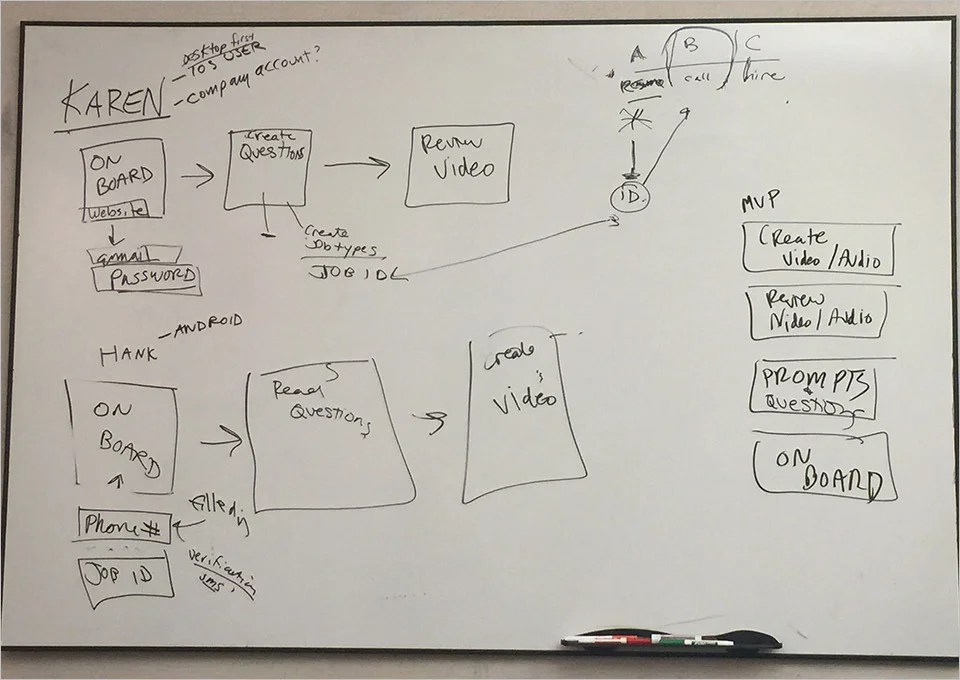 DESKTOP first
IOS USER
KAREN
- company account?
A B C
Resume call hire
ON
BOARD
website
Create
Questions
Review
Video
ID
gmmail
PASSWORD
Create
Job types
JOB ID
MVP
CReate
Video / Audio
Review
Video / Audio
PROMPTS
Questions
ON
BOARD
HANK
- ANDROID
ON
BOARD
Read
Questions
Create
Video
Phone #
filled in
JOB ID
Verification
sms